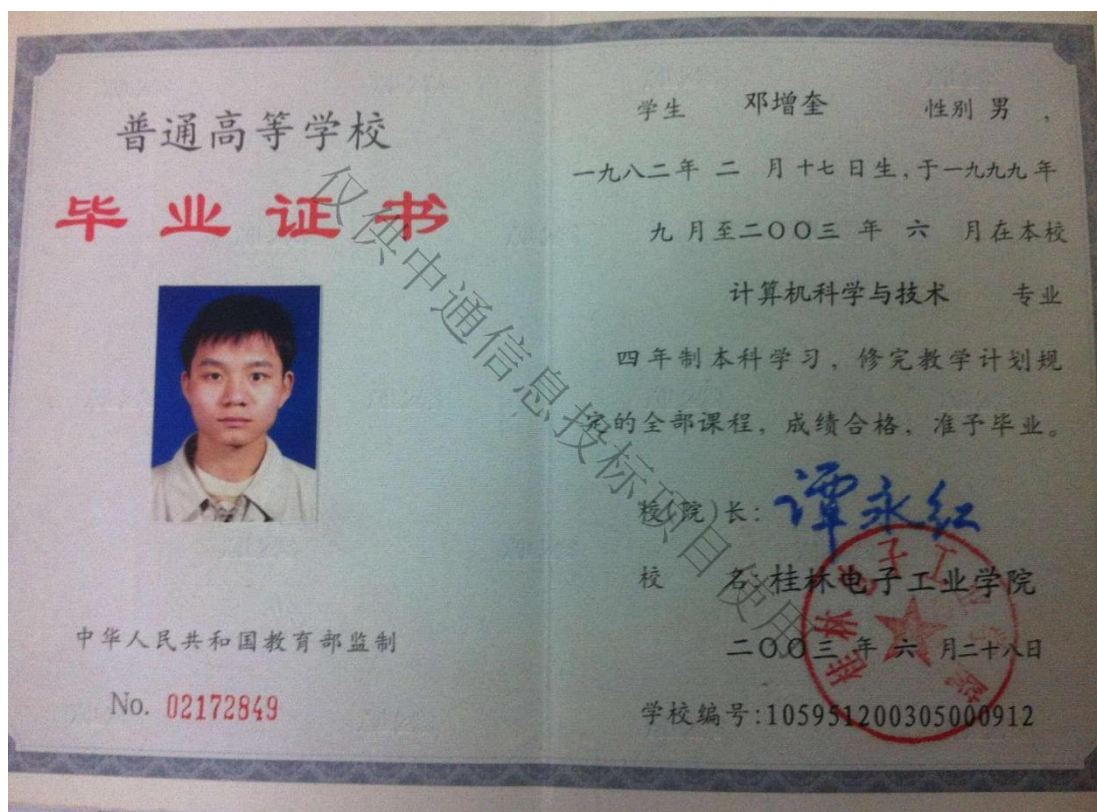 普通高等学校
毕业证书
中华人民共和国教育部监制
No. 02172849
学生 邓增奎 性别 男 ,
一九八二年 二 月十七日生,于一九九九年
九月至二〇〇三 年 六 月在本校
计算机科学与技术 专业
四年制本科学习，修完教学计划规
定的全部课程，成绩合格，准予毕业。
校(院)长: 谭永红
校 名:桂林电子工业学院
二〇〇三年 六 月二十八日
学校编号:105951200305000912
仅供中通信息投标项目使用
桂林电子工业学院